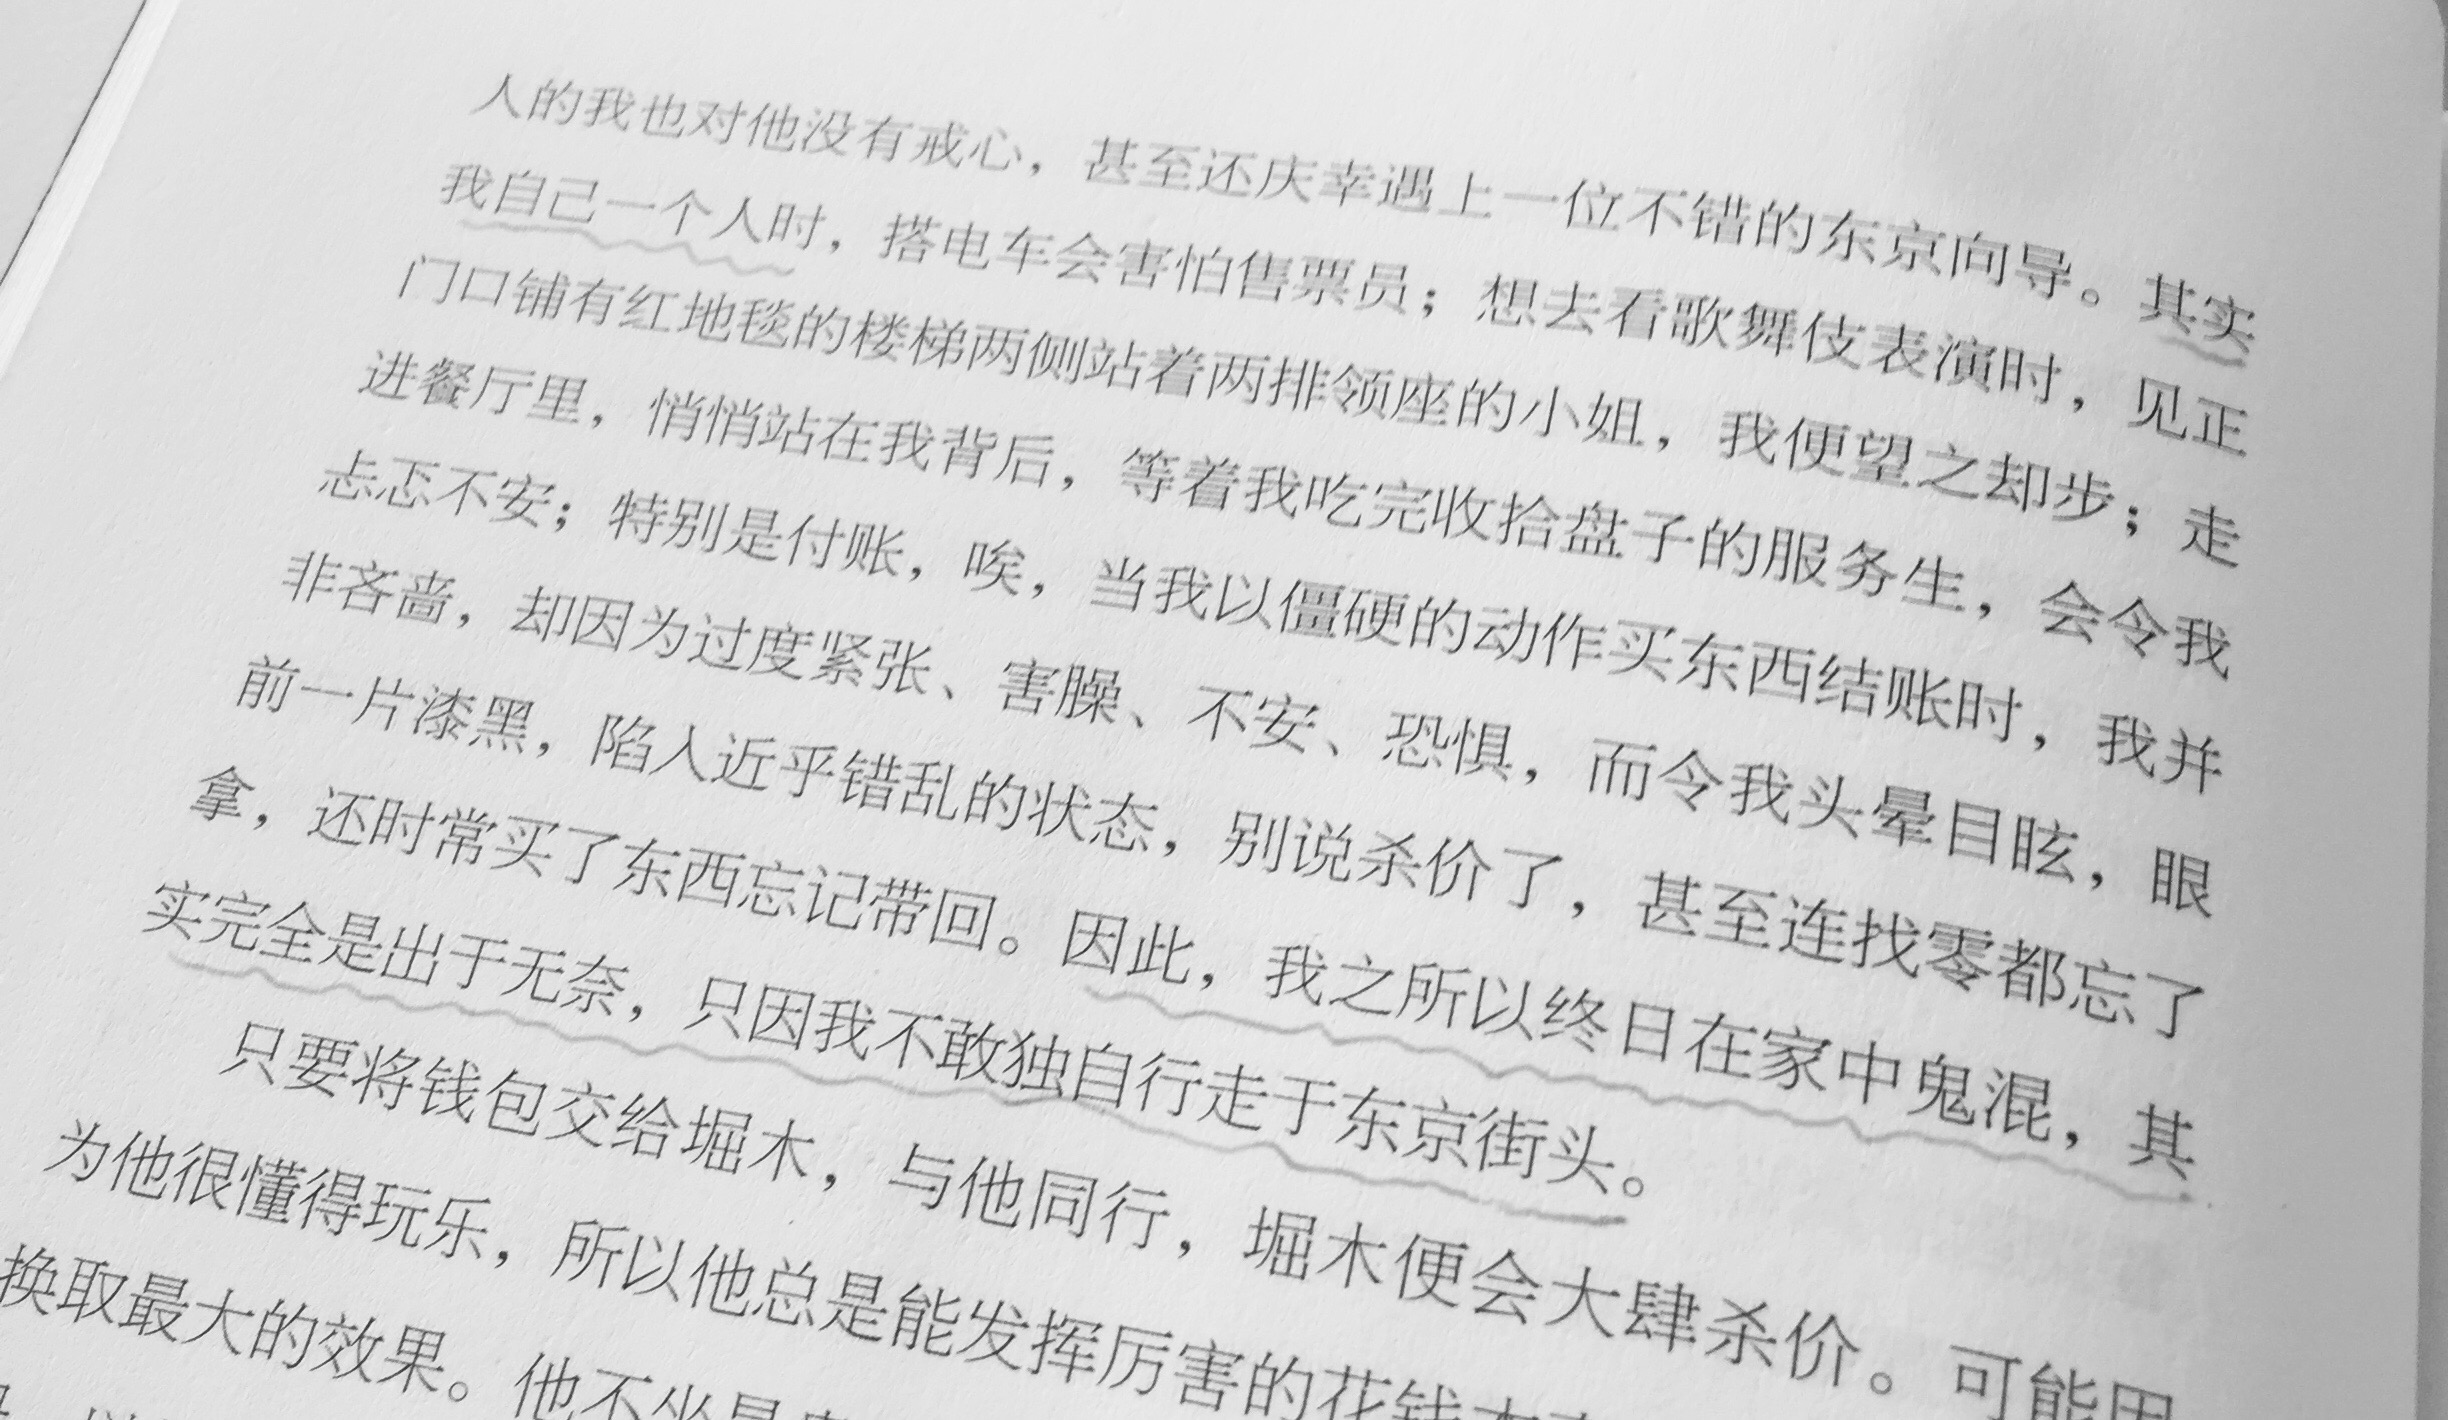 人的我也对他没有戒心，甚至还庆幸遇上一位不错的东京向导。其实
我自己一个人时，搭电车会害怕售票员；想去看歌舞伎表演时，见正
门口铺有红地毯的楼梯两侧站着两排领座的小姐，我便望之却步；走
进餐厅里，悄悄站在我背后，等着我吃完收拾盘子的服务生，会令我
忐忑不安；特别是付账，唉，当我以僵硬的动作买东西结账时，我并
非吝啬，却因为过度紧张、害臊、不安、恐惧，而令我头晕目眩，眼
前一片漆黑，陷入近乎错乱的状态，别说杀价了，甚至连找零都忘了
拿，还时常买了东西忘记带回。因此，我之所以终日在家中鬼混，其
实完全是出于无奈，只因我不敢独自行走于东京街头。
只要将钱包交给堀木，与他同行，堀木便会大肆杀价。可能因
为他很懂得玩乐，所以他总是能发挥厉害的花钱
换取最大的效果。他不坐